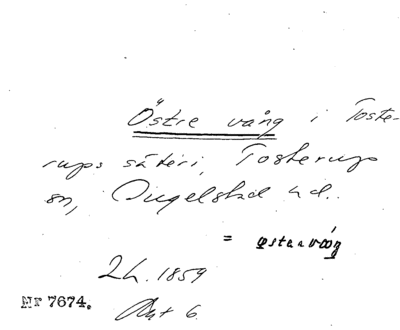 Östre vång i Toste-
rups säteri, Tosterups
sn, Ingelstad hd.
=
2h. 1859
Akt 6.
Nr 7674.